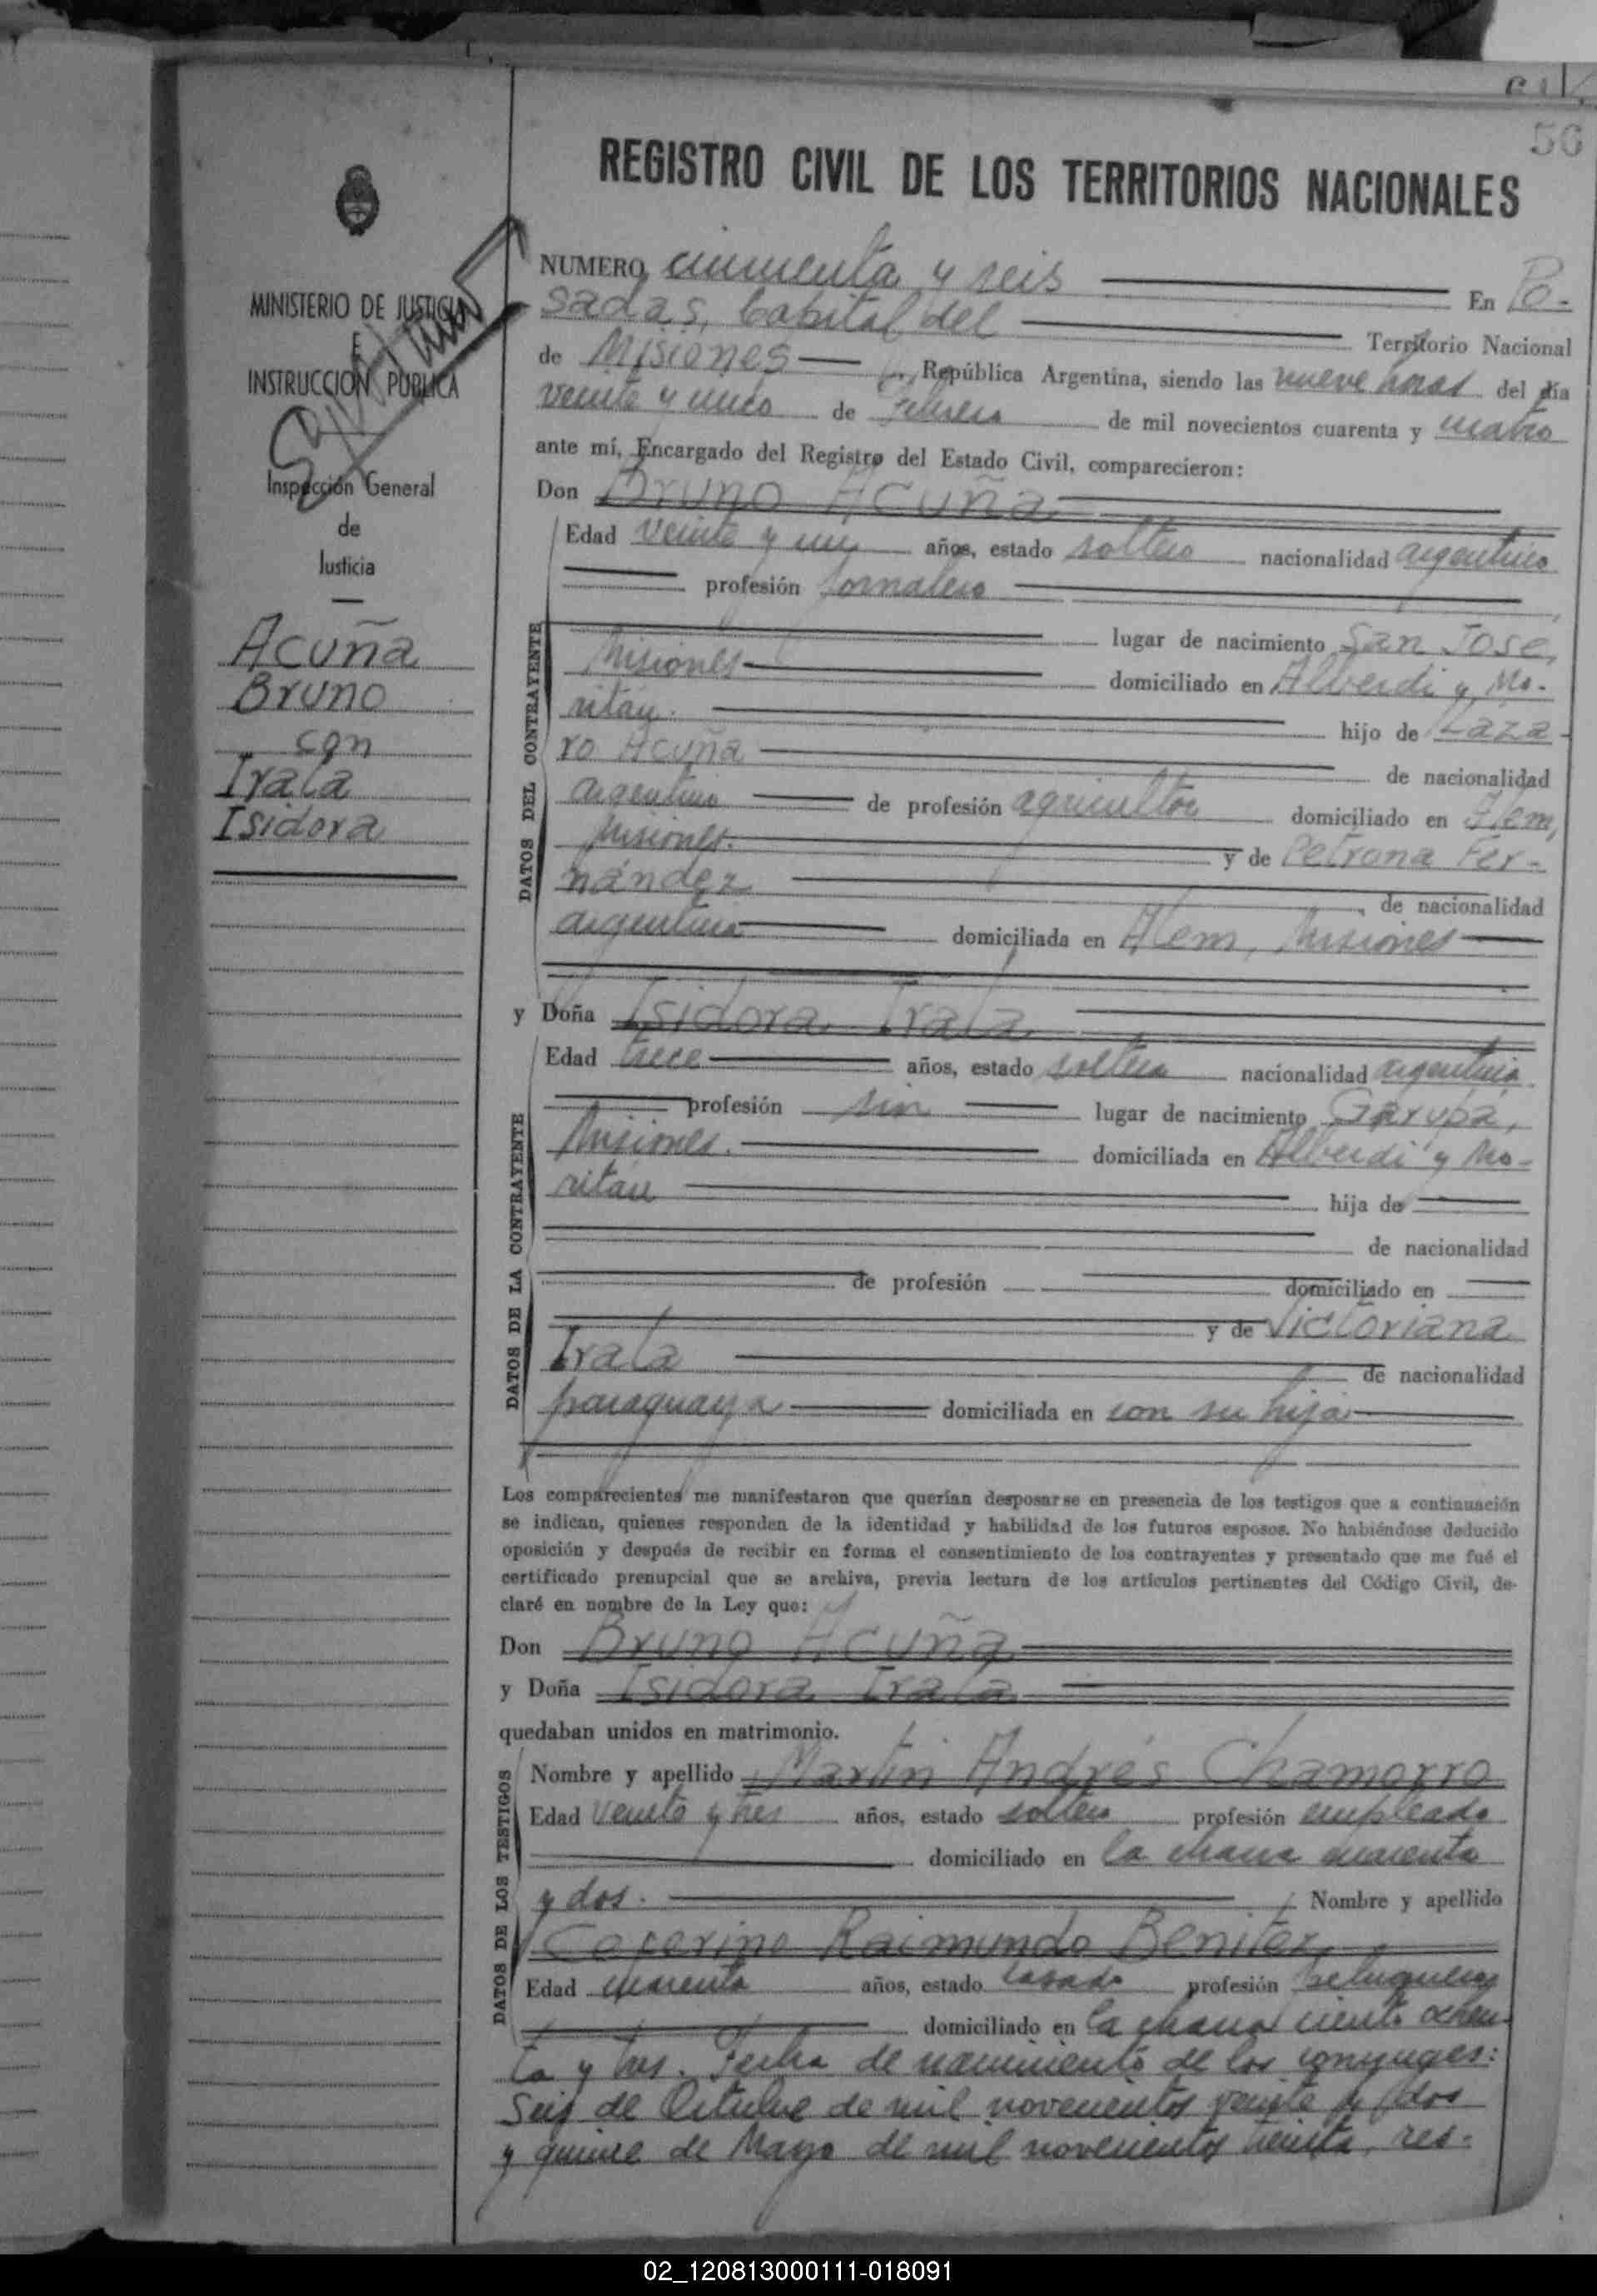 56
REGISTRO CIVIL DE LOS TERRITORIOS NACIONALES
MINISTERIO DE JUSTICIA
E
INSTRUCCION PUBLICA
Inspección General
de
Justicia
Acuña
Bruno
con
Irala
Isidora
NUMERO cincuenta y seis En Po-
sadas, Capital del Territorio Nacional
de Misiones República Argentina, siendo las nueve horas del día
veinte y cinco de Febrero de mil novecientos cuarenta y cuatro
ante mí, Encargado del Registro del Estado Civil, comparecieron:
Don Bruno Acuña
Edad veinte y un años, estado soltero nacionalidad argentino
profesión jornalero
DATOS DEL CONTRAYENTE
lugar de nacimiento San José,
Misiones domiciliado en Alberdi y Mo-
ritán. hijo de Láza-
ro Acuña de nacionalidad
argentino de profesión agricultor domiciliado en Alem,
Misiones. y de Petrona Fer-
nández de nacionalidad
argentina domiciliada en Alem, Misiones
y Doña Isidora Irala
Edad trece años, estado soltera nacionalidad argentina
profesión sin lugar de nacimiento Garupá,
DATOS DE LA CONTRAYENTE
Misiones. domiciliada en Alberdi y Mo-
ritán hija de
de nacionalidad
de profesión domiciliado en
y de Victoriana
Irala de nacionalidad
paraguaya domiciliada en con su hija
Los comparecientes me manifestaron que querían desposarse en presencia de los testigos que a continuación
se indican, quienes responden de la identidad y habilidad de los futuros esposos. No habiéndose deducido
oposición y después de recibir en forma el consentimiento de los contrayentes y presentado que me fué el
certificado prenupcial que se archiva, previa lectura de los artículos pertinentes del Código Civil, de-
claré en nombre de la Ley que:
Don Bruno Acuña
y Doña Isidora Irala
quedaban unidos en matrimonio.
DATOS DE LOS TESTIGOS
Nombre y apellido Martín Andrés Chamorro
Edad veinte y tres años, estado soltero profesión empleado
domiciliado en la chacra cuarenta
y dos. Nombre y apellido
Ceferino Raimundo Benítez
Edad cuarenta años, estado casado profesión peluquero
domiciliado en la chacra ciento ochen-
ta y tres. Fecha de nacimiento de los conyuges:
Seis de Octubre de mil novecientos veinte y dos
y quince de Mayo de mil novecientos treinta, res-
02_120813000111-018091